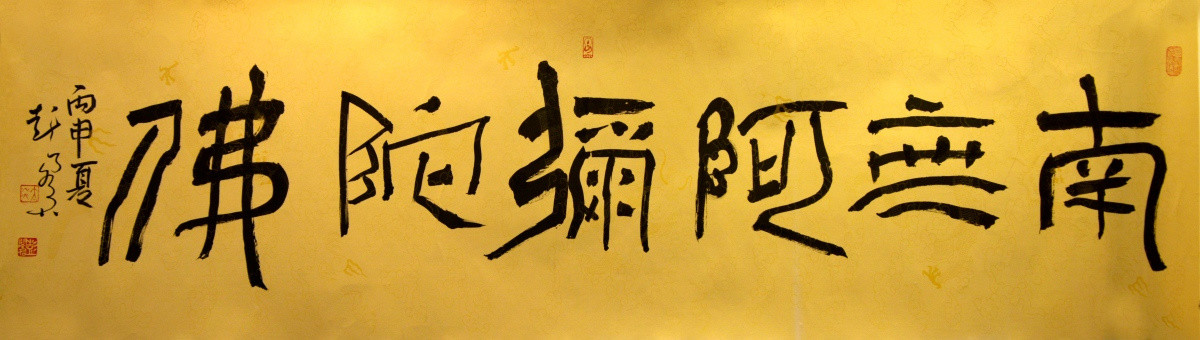 南無阿彌陀佛
丙申夏